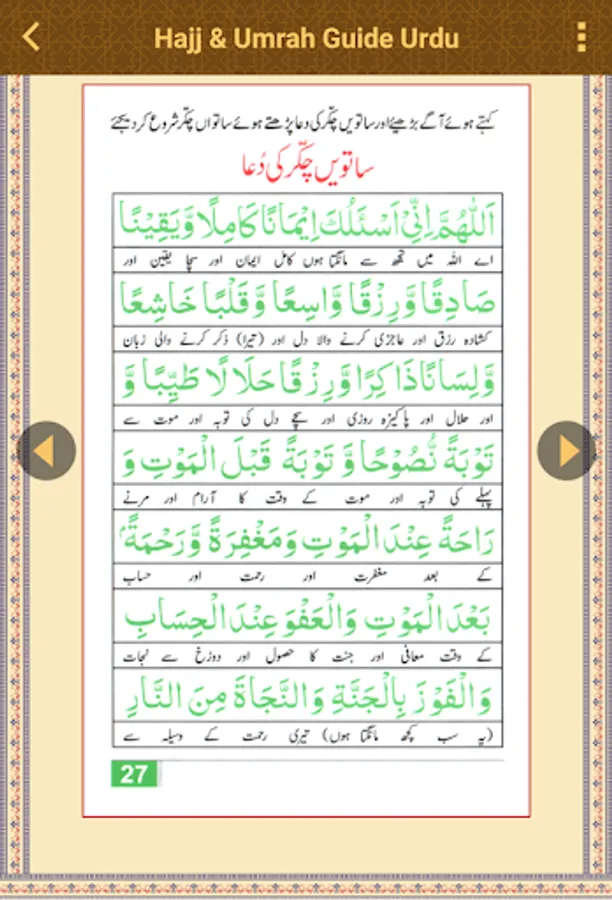 Hajj & Umrah Guide Urdu
کہتے ہوئے آگے بڑھیئے اور ساتویں چکّر کی دعا پڑھتے ہوئے ساتواں چکّر شروع کر دیجئے
ساتویں چکّر کی دُعا
اَللّٰهُمَّ اِنِّيْ اَسْئَلُكَ اِيْمَانًا كَامِلًا وَّيَقِيْنًا
اے اللہ میں تجھ سے مانگتا ہوں کامل ایمان اور سچا یقین اور
صَادِقًا وَّرِزْقًا وَّاسِعًا وَّقَلْبًا خَاشِعًا
کشادہ رزق اور عاجزی کرنے والا دل اور (تیرا) ذکر کرنے والی زبان
وَّلِسَانًا ذَاكِرًا وَّرِزْقًا حَلَالًا طَيِّبًا وَّ
اور حلال اور پاکیزہ روزی اور سچے دل کی توبہ اور موت سے
تَوْبَةً نَّصُوْحًا وَّ تَوْبَةً قَبْلَ الْمَوْتِ وَ
پہلے کی توبہ اور موت کے وقت کا آرام اور مرنے
رَاحَةً عِنْدَ الْمَوْتِ وَمَغْفِرَةً وَّرَحْمَةً ۢ
کے بعد مغفرت اور رحمت اور حساب
بَعْدَ الْمَوْتِ وَالْعَفْوَ عِنْدَ الْحِسَابِ
کے وقت معافی اور جنت کا حصول اور دوزخ سے نجات
وَالْفَوْزَ بِالْجَنَّةِ وَالنَّجَاةَ مِنَ النَّارِ
(یہ سب کچھ مانگتا ہوں) تیری رحمت کے وسیلہ سے
27